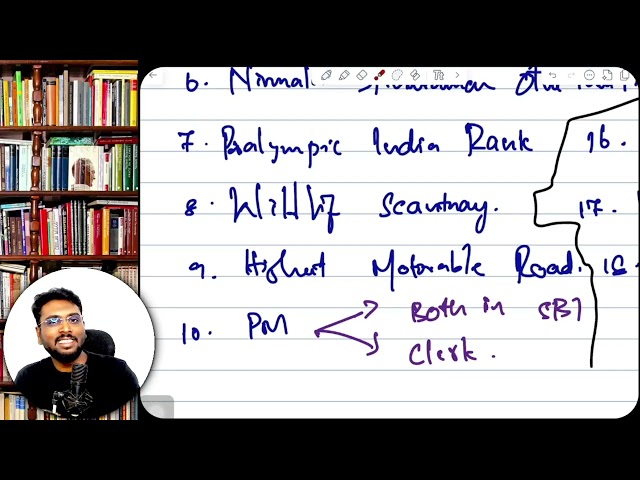 6. Nirmal
7. Paralympic India Rank 16.
8. 17.
9. Highest Motorable Road. 18.
10. PM Both in SBI
Clerk.